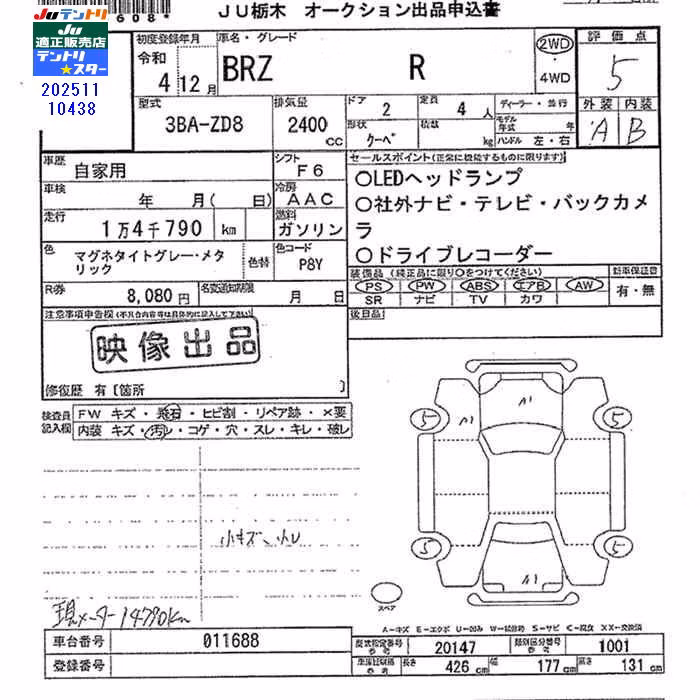 JUテントリ
JU
適正販売店
テントリ
★スター
202511
10438
608*
JU栃木 オークション出品申込書
初度登録年月
令和 4 12月
車名・グレード
BRZ R
2WD
・
4WD
評価点
5
外装 内装
A B
型式
3BA-ZD8
排気量
2400 cc
ドア 2
定員 4 人
形状 クーペ
積載 kg
ディーラー・並行
モデル年式 年
ハンドル 左・右
車歴 自家用
シフト F6
車検 年 月( 日)
冷房 AAC
走行 1万4千790 km
燃料 ガソリン
色 マグネタイトグレー・メタリック
色替
色コード P8Y
R券 8,080円
名変通知期限 月 日
セールスポイント(正常に機能するものに限ります)
○LEDヘッドランプ
○社外ナビ・テレビ・バックカメラ
○ドライブレコーダー
装備品(純正品に限り○をつけてください)
PS PW ABS エアB AW
SR ナビ TV カワ
新車保証書
有・無
後日品
注意事項申告欄(不具合内容等は具体的に記入して下さい)
映像出品
修復歴 有〔箇所 〕
検査員記入欄
FW キズ・飛石・ヒビ割・リペア跡・×要
内装 キズ・汚レ・コゲ・穴・スレ・キレ・破レ
小キズ、小U
現メーター14790km
5 5
A1
5 5
A1
スペア
A-キズ E-エクボ U-凹み W-補修跡 S-サビ C-腐食 XX-交換済
車台番号 011688
登録番号
型式指定番号 参考 20147
類別区分番号 参考 1001
車庫証明用 参考
長さ 426 cm
幅 177 cm
高さ 131 cm